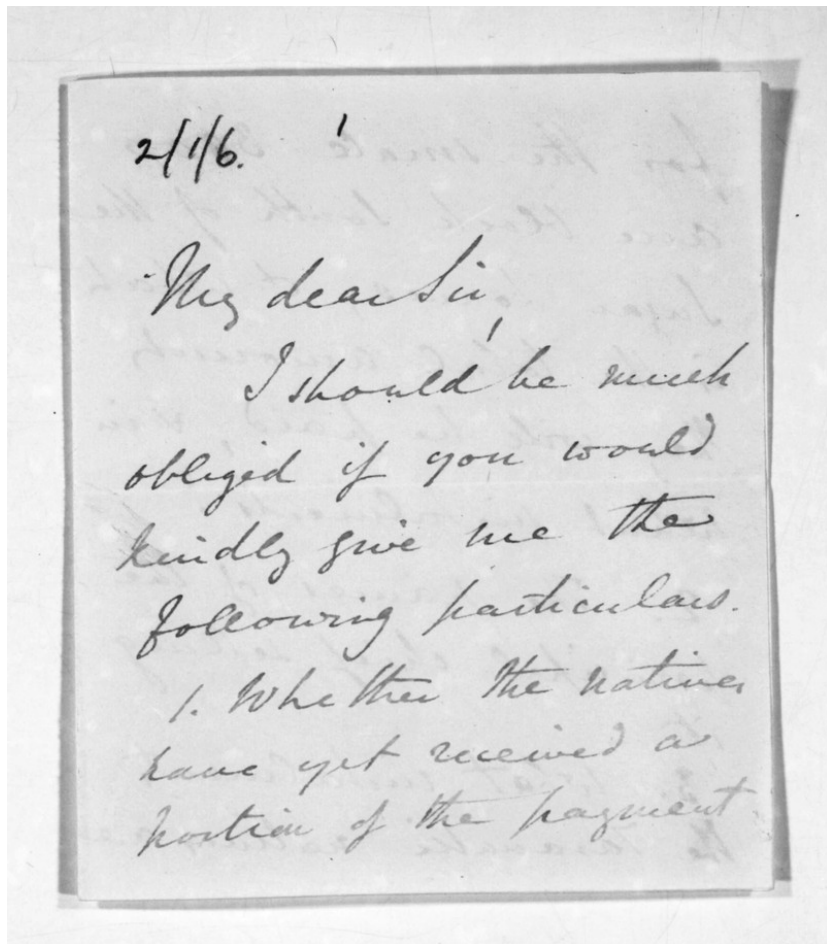 2/1/6.
My dear Sir,
I should be much
obliged if you would
kindly give me the
following particulars.
1. Whether the natives
have yet received a
portion of the payment